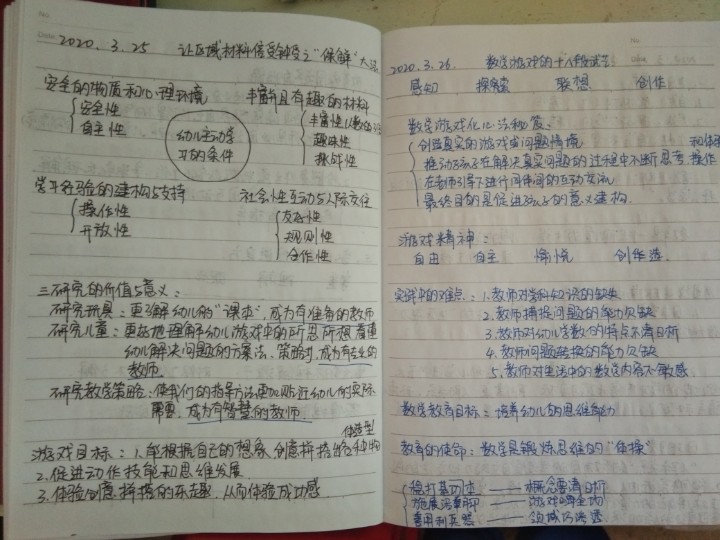 2020.3.25 让区域材料倍受钟爱之"保鲜"大法
安全的物质和心理环境 丰富且有趣的材料
安全性 丰富性
自主性 趣味性
挑战性
幼儿主动学
习的条件
学习经验的建构与支持 社会性互动与人际交往
操作性 友好性
开放性 规则性
合作性
三研究的价值与意义:
研究玩具:更了解幼儿的"课本",成为有准备的教师
研究儿童:更好地理解幼儿游戏中的所思所想 看懂
幼儿解决问题的方法、策略,成为有专业的
教师.
研究教学策略:使我们的指导方法更加贴近幼儿的实际
需要,成为有智慧的教师
体造型
游戏目标:1.能根据自己的想象,创意拼搭出各种物
2.促进动作技能和思维发展
3.体验创意拼搭的乐趣,从而体验成功感
2020.3.26. 数学游戏的十八般武艺
感知 探索 联想 创作
数学游戏化心法秘笈:
创造真实的游戏或问题情境
推动孩子在解决真实问题的过程中不断思考 操作
在老师引导下进行同伴间的互动交流
最终目的是促进孩子的意义建构.
游戏精神:
自由 自主 愉悦 创作造
实践中的难点:1.教师对学科知识的缺失
2.教师捕捉问题的能力欠缺
3.教师对幼儿学数的特点不清晰
4.教师问题转换的能力欠缺
5.教师对生活中的数学内容不敏感
数学教育目标:培养幼儿的思维能力
教育的使命:数学是锻炼思维的"体操"
稳打基本功 —— 概念要清晰
游戏
善用 —— 领域巧渗透